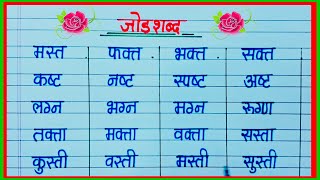 जोडशब्द
मस्त फक्त भक्त सक्त
कष्ट नष्ट स्पष्ट अष्ट
लग्न भग्न मग्न रुग्ण
तक्ता मक्ता वक्ता सस्ता
कुस्ती वस्ती मस्ती सुस्ती